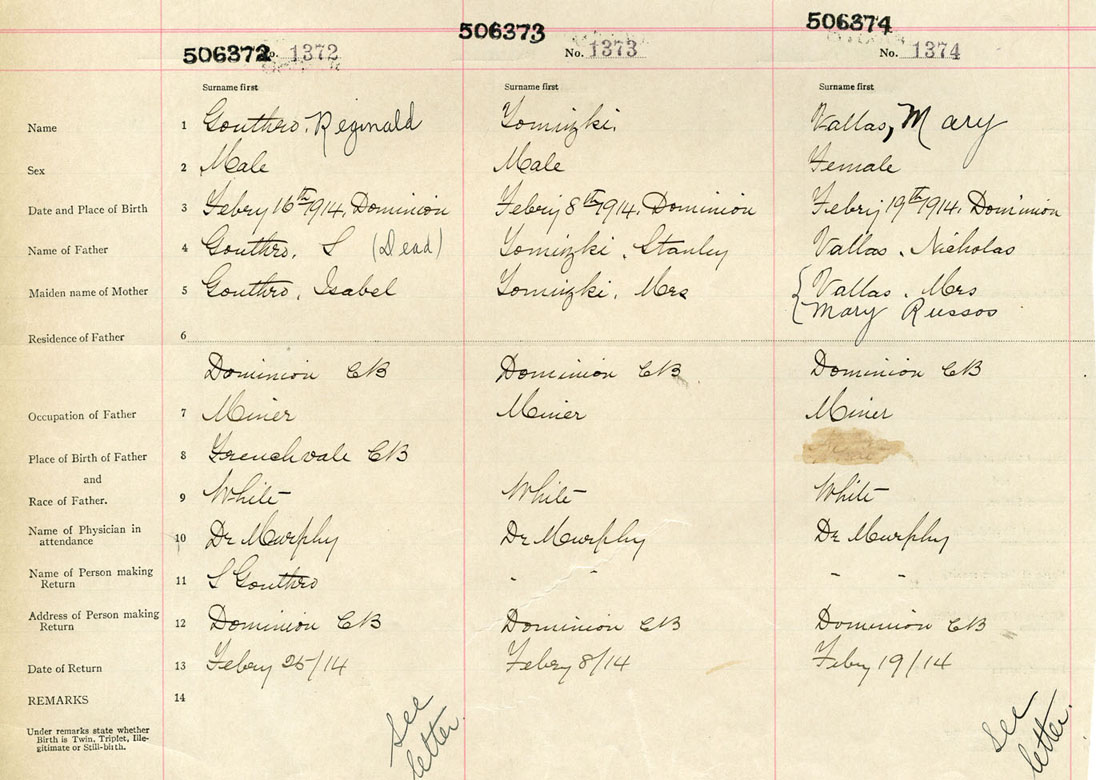 506372 No. 1372
506373 No. 1373
506374 No. 1374
Surname first Surname first Surname first
Name 1 Gouthro, Reginald Vallas, Mary
Sex 2 Male Male Female
Date and Place of Birth 3 Febry 16th 1914, Dominion Febry 8th 1914, Dominion Febry 19th 1914, Dominion
Name of Father 4 Gouthro, S (Dead) Stanley Vallas, Nicholas
Maiden name of Mother 5 Gouthro, Isabel Mrs Vallas, Mrs
Mary Russos
Residence of Father 6
Dominion CB Dominion CB Dominion CB
Occupation of Father 7 Miner Miner Miner
Place of Birth of Father 8 Frenchvale CB
and
Race of Father. 9 White White White
Name of Physician in
attendance 10 Dr Murphy Dr Murphy Dr Murphy
Name of Person making
Return 11 S Gouthro " " " "
Address of Person making
Return 12 Dominion CB Dominion CB Dominion CB
Date of Return 13 Febry 25/14 Febry 8/14 Feby 19/14
REMARKS 14
Under remarks state whether
Birth is Twin, Triplet, Ille-
gitimate or Still-birth.
See
letter.
See
letter.